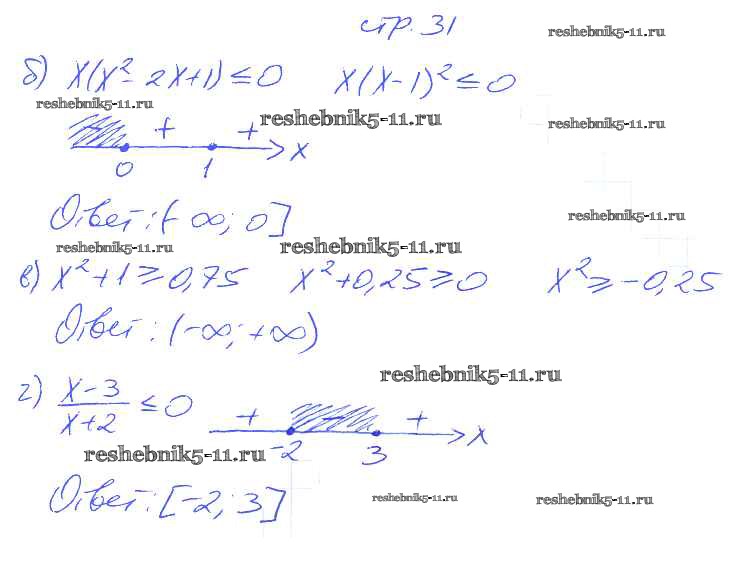 стр. 31 reshebnik5-11.ru
б) x(x² - 2x+1) ≤ 0 x(x-1)² ≤ 0
reshebnik5-11.ru
+ + reshebnik5-11.ru reshebnik5-11.ru
0 1 x
Ответ: (-∞; 0] reshebnik5-11.ru
reshebnik5-11.ru reshebnik5-11.ru
в) x² + 1 ≥ 0,75 x² + 0,25 ≥ 0 x² ≥ -0,25
Ответ: (-∞; +∞)
reshebnik5-11.ru
г) (x-3)/(x+2) ≤ 0 + - + x
reshebnik5-11.ru -2 3
Ответ: [-2; 3] reshebnik5-11.ru reshebnik5-11.ru